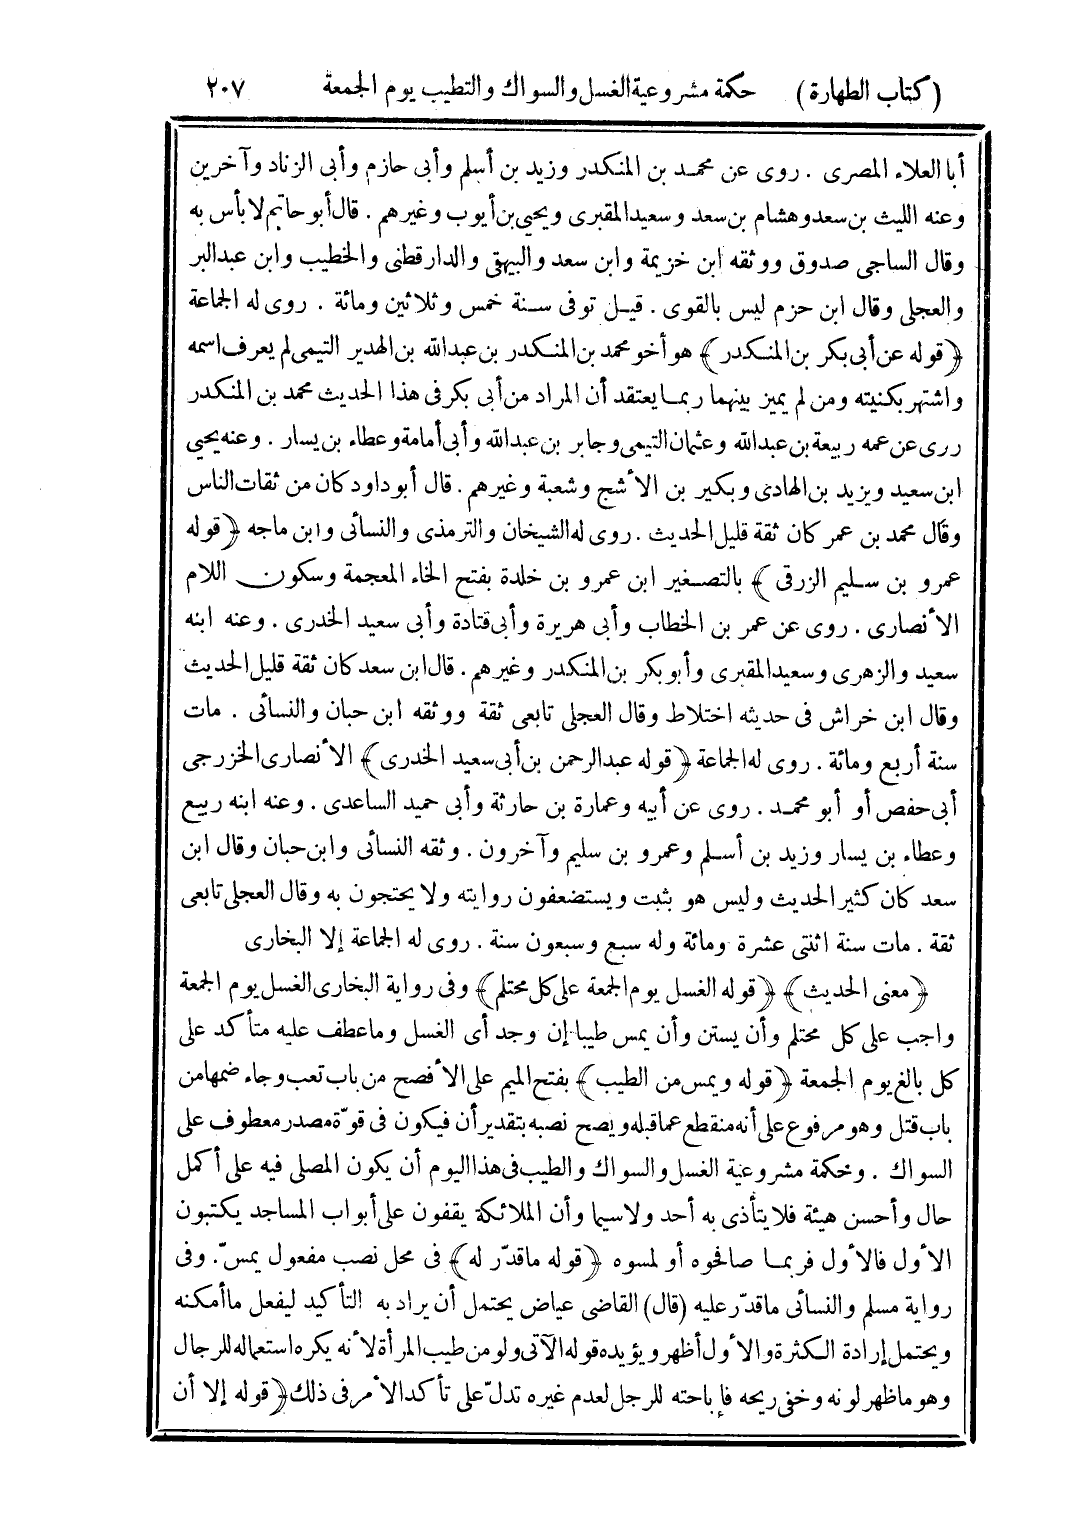 (كتاب الطهارة) حكمة مشروعية الغسل والسواك والتطيب يوم الجمعة ٢٠٧
أبا العلاء المصرى . روى عن محمد بن المنكدر وزيد بن أسلم وأبى حازم وأبى الزناد وآخرين
وعنه الليث بن سعد وهشام بن سعد وسعيد المقبرى ويحيى بن أيوب وغيرهم . قال أبو حاتم لا بأس به
وقال الساجى صدوق ووثقه ابن خزيمة وابن سعد والبيهقى والدارقطنى والخطيب وابن عبد البر
والعجلى وقال ابن حزم ليس بالقوى . قيل توفى سنة خمس وثلاثين ومائة . روى له الجماعة
﴿قوله عن أبى بكر بن المنكدر﴾ هو أخو محمد بن المنكدر بن عبد الله بن الهدير التيمى لم يعرف اسمه
واشتهر بكنيته ومن لم يميز بينهما ربما يعتقد أن المراد من أبى بكر فى هذا الحديث محمد بن المنكدر
ررى عن عمه ربيعة بن عبد الله وعثمان التيمى وجابر بن عبد الله وأبى أمامة وعطاء بن يسار . وعنه يحيى
ابن سعيد ويزيد بن الهادى وبكير بن الأشج وشعبة وغيرهم . قال أبو داود كان من ثقات الناس
وقال محمد بن عمر كان ثقة قليل الحديث . روى له الشيخان والترمذى والنسائى وابن ماجه ﴿قوله
عمرو بن سليم الزرقى﴾ بالتصغير ابن عمرو بن خلدة بفتح الخاء المعجمة وسكون اللام
الأنصارى . روى عن عمر بن الخطاب وأبى هريرة وأبى قتادة وأبى سعيد الخدرى . وعنه ابنه
سعيد والزهرى وسعيد المقبرى وأبو بكر بن المنكدر وغيرهم . قال ابن سعد كان ثقة قليل الحديث
وقال ابن خراش فى حديثه اختلاط وقال العجلى تابعى ثقة ووثقه ابن حبان والنسائى . مات
سنة أربع ومائة . روى له الجماعة ﴿قوله عبد الرحمن بن أبى سعيد الخدرى﴾ الأنصارى الخزرجى
أبى حفص أو أبو محمد . روى عن أبيه وعمارة بن حارثة وأبى حميد الساعدى . وعنه ابنه ربيع
وعطاء بن يسار وزيد بن أسلم وعمرو بن سليم وآخرون . وثقه النسائى وابن حبان وقال ابن
سعد كان كثير الحديث وليس هو بثبت ويستضعفون روايته ولا يحتجون به وقال العجلى تابعى
ثقة . مات سنة اثنتى عشرة ومائة وله سبع وسبعون سنة . روى له الجماعة إلا البخارى
﴿معنى الحديث﴾ ﴿قوله الغسل يوم الجمعة على كل محتلم﴾ وفى رواية البخارى الغسل يوم الجمعة
واجب على كل محتلم وأن يستن وأن يمس طيبا إن وجد أى الغسل وما عطف عليه متأكد على
كل بالغ يوم الجمعة ﴿قوله ويمس من الطيب﴾ بفتح الميم على الأفصح من باب تعب وجاء ضمها من
باب قتل وهو مرفوع على أنه منقطع عما قبله ويصح نصبه بتقدير أن فيكون فى قوّة مصدر معطوف على
السواك . وحكمة مشروعية الغسل والسواك والطيب فى هذا اليوم أن يكون المصلى فيه على أكمل
حال وأحسن هيئة فلا يتأذى به أحد ولا سيما وأن الملائكة يقفون على أبواب المساجد يكتبون
الأول فالأول فربما صافحوه أو لمسوه ﴿قوله ما قدّر له﴾ فى محل نصب مفعول يمسّ. وفى
رواية مسلم والنسائى ما قدّر عليه (قال) القاضى عياض يحتمل أن يراد به التأكيد ليفعل ما أمكنه
ويحتمل إرادة الكثرة والأول أظهر ويؤيده قوله الآتى ولو من طيب المرأة لأنه يكره استعماله للرجال
وهو ما ظهر لونه وخفى ريحه فإباحته للرجل لعدم غيره تدلّ على تأكد الأمر فى ذلك ﴿قوله إلا أن